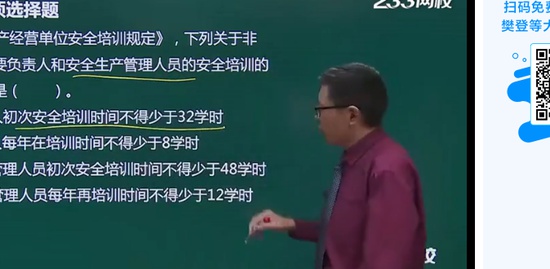 项选择题
233网校
产经营单位安全培训规定》，下列关于非
要负责人和安全生产管理人员的安全培训的
是（ ）。
人初次安全培训时间不得少于32学时
人每年在培训时间不得少于8学时
管理人员初次安全培训时间不得少于48学时
管理人员每年再培训时间不得少于12学时
校
扫码免费
樊登等大